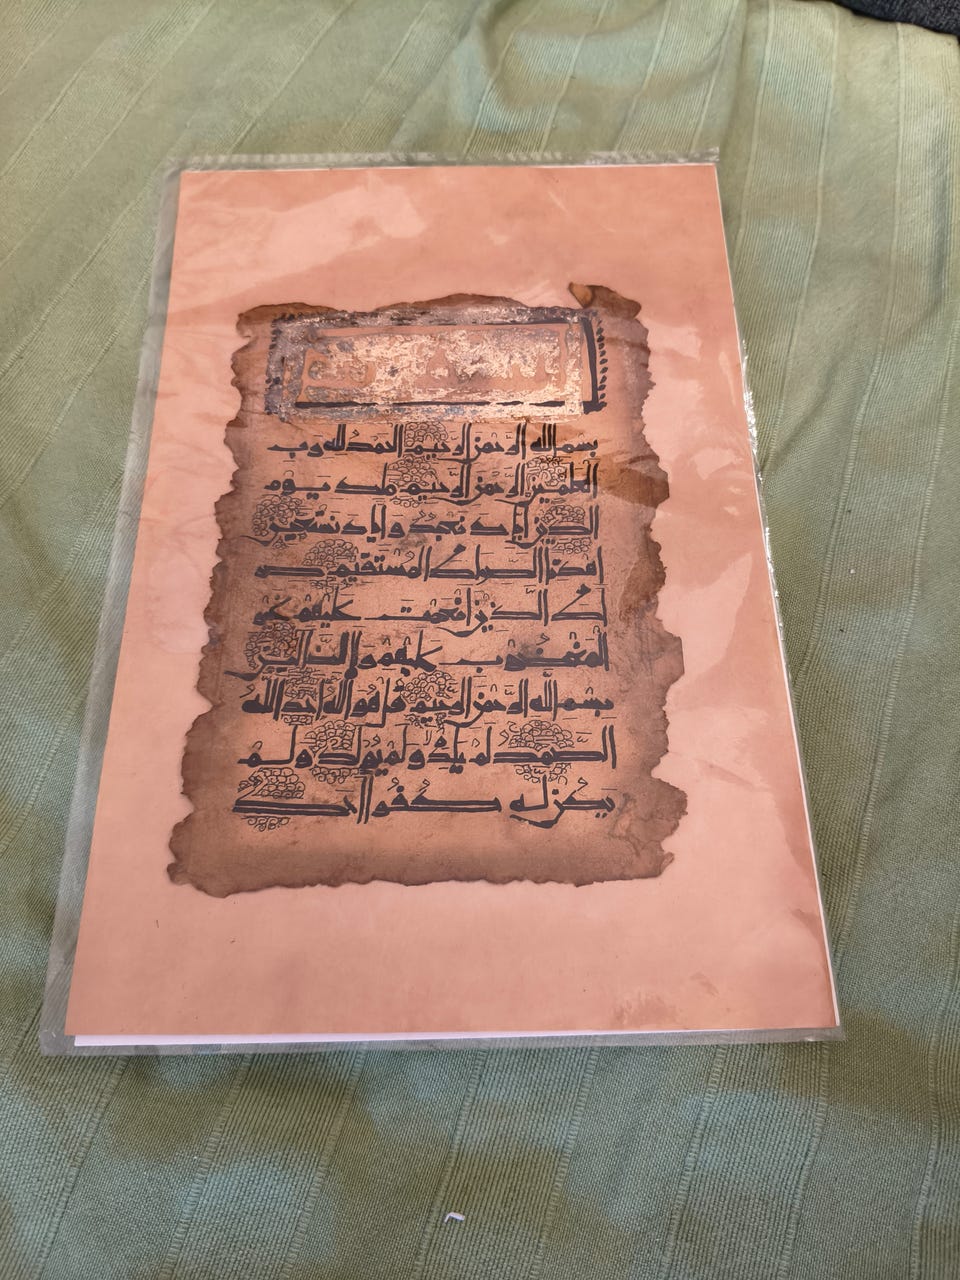 بسم الله الرحمن الرحيم الحمد لله رب
العلمين الرحمن الرحيم ملك يوم
الدين اياك نعبد واياك نستعين
اهدنا الصراط المستقيم صر
اط الذين انعمت عليهم غير
المغضوب عليهم ولا الضالين
بسم الله الرحمن الرحيم قل هو الله احد الله
الصمد لم يلد ولم يولد ولم
يكن له كفوا احد